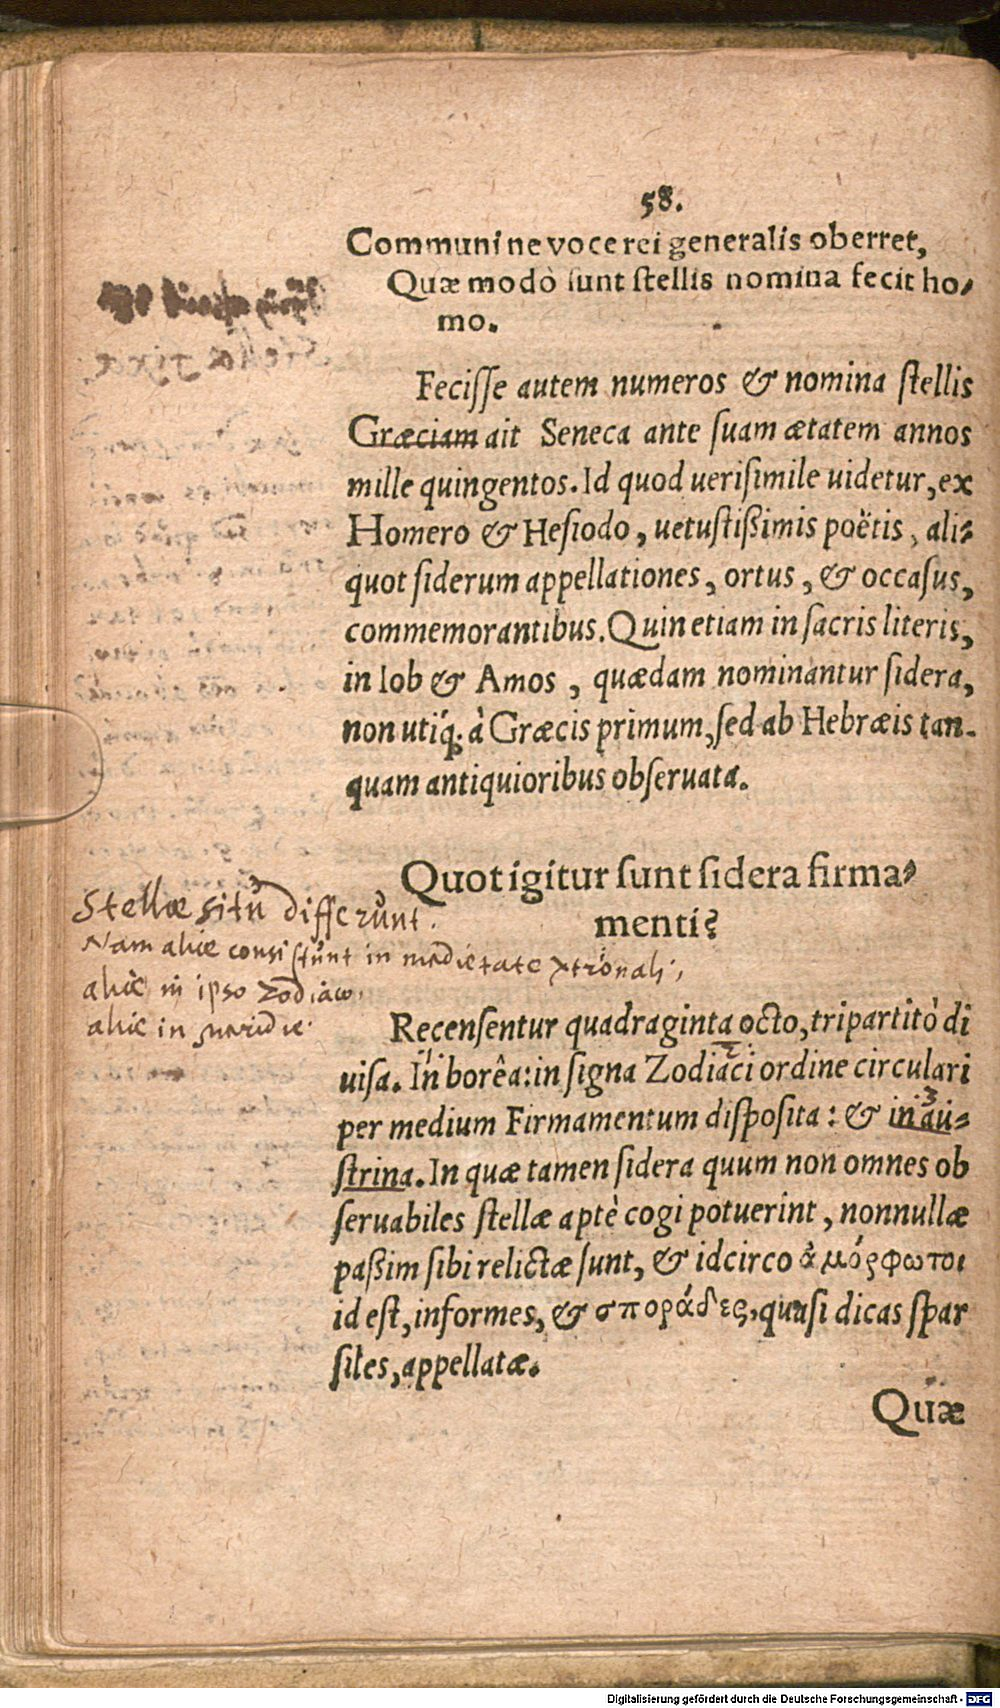 58.
Communi ne voce rei generalis oberret,
Quæ modò sunt stellis nomina fecit ho-
mo.
Fecisse autem numeros & nomina stellis
Græciam ait Seneca ante suam ætatem annos
mille quingentos. Id quod uerisimile uidetur, ex
Homero & Hesiodo, uetustißimis poëtis, ali-
quot siderum appellationes, ortus, & occasus,
commemorantibus. Quin etiam in sacris literis,
in Iob & Amos, quædam nominantur sidera,
non utiq́; à Græcis primum, sed ab Hebræis tan-
quam antiquioribus obseruata.
Quot igitur sunt sidera firma-
menti?
Stellæ situ differunt.
Nam aliæ consistunt in medietate
aliæ in ipso Zodiaco,
aliæ in meridie.
Recensentur quadraginta octo, tripartitò di
uisa. In borêa: in signa Zodiaci ordine circulari
per medium Firmamentum disposita: & in au-
strina. In quæ tamen sidera quum non omnes ob
seruabiles stellæ aptè cogi potuerint, nonnullæ
paßim sibi relictæ sunt, & idcirco ἀμόρφωτοι
id est, informes, & σποράδες, quasi dicas spar
siles, appellatæ.
Quæ
Digitalisierung gefördert durch die Deutsche Forschungsgemeinschaft - DFG